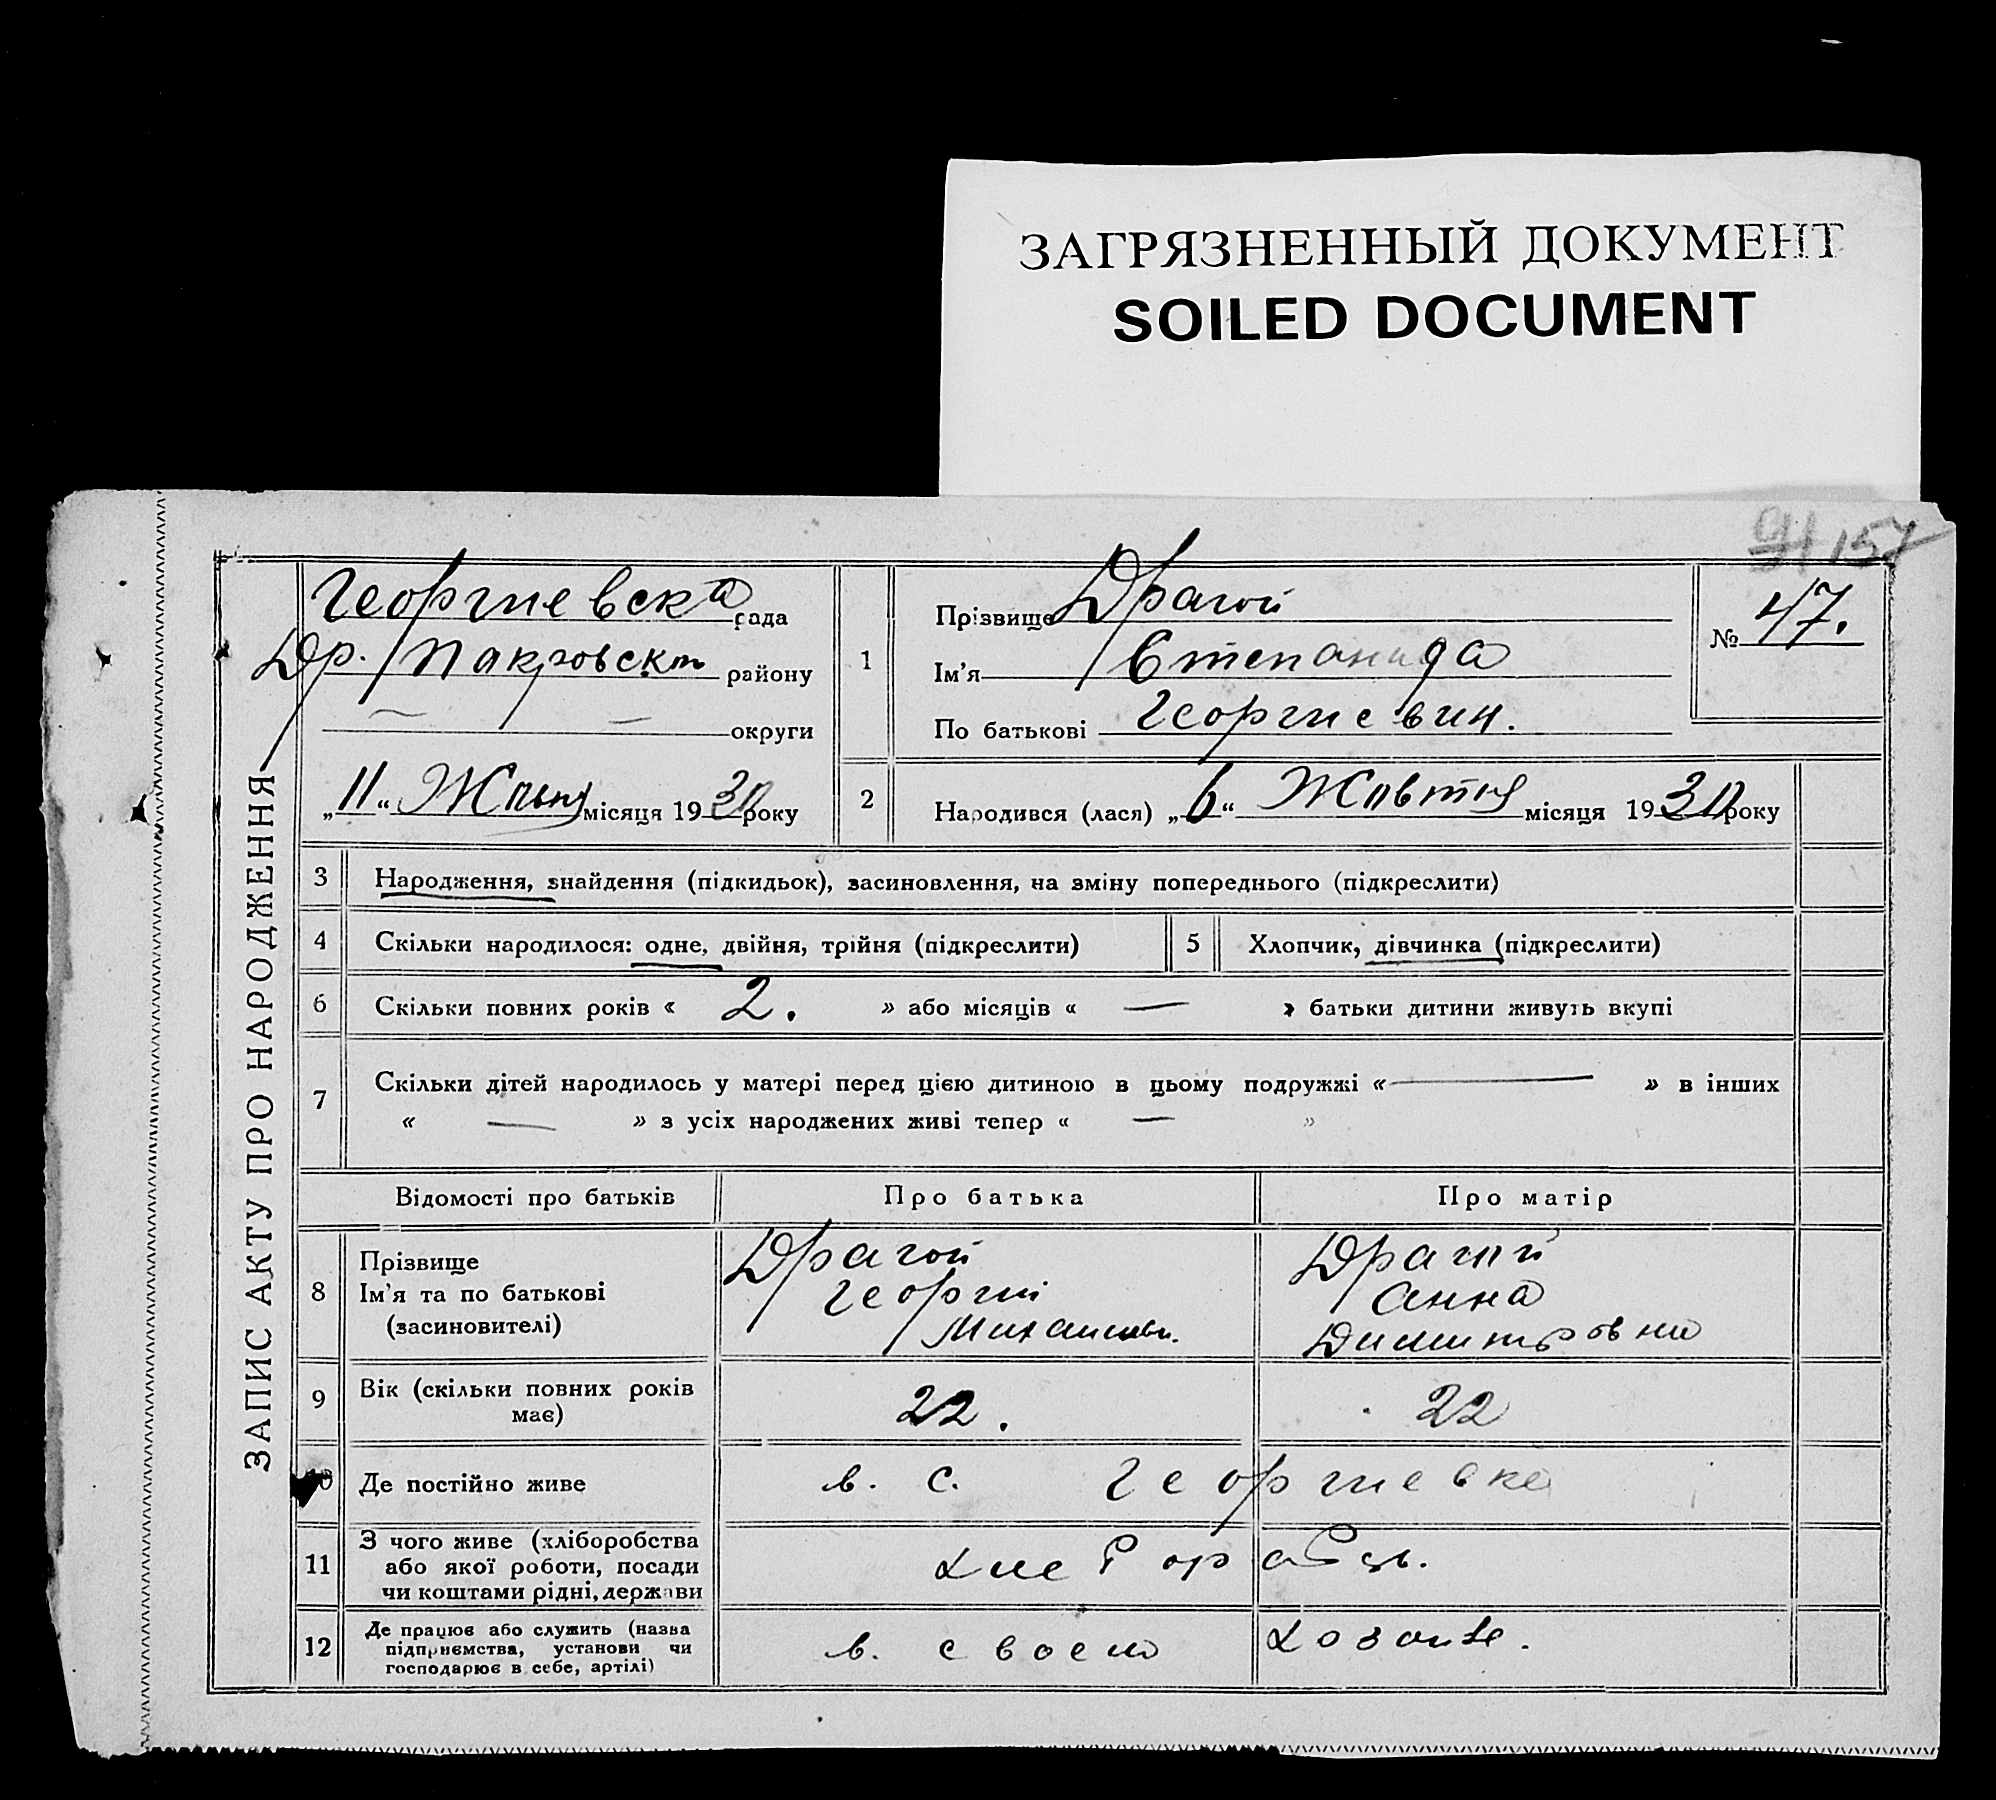 ЗАГРЯЗНЕННЫЙ ДОКУМЕНТ
SOILED DOCUMENT
91 157
ЗАПИС АКТУ ПРО НАРОДЖЕННЯ
Георгиевска рада
Др. Пакровском району
— — округи
„11“ місяця 1930 року
1
Прізвище Драгой
Ім'я Степанида
По батькові Георгиевич.
№ 47.
2
Народився (лася) „6“ Жовтня місяця 1930 року
3 Народження, знайдення (підкидьок), засиновлення, на зміну попереднього (підкреслити)
4 Скільки народилося: одне, двійня, трійня (підкреслити)
5 Хлопчик, дівчинка (підкреслити)
6 Скільки повних років « 2. » або місяців « — » батьки дитини живуть вкупі
7 Скільки дітей народилось у матері перед цією дитиною в цьому подружжі « — » в інших
« — » з усіх народжених живі тепер « — »
Відомості про батьків Про батька Про матір
8
Прізвище Драгой Драгой
Ім'я та по батькові Георгий Анна
(засиновителі) Димитровна
9 Вік (скільки повних років має) 22. 22
10 Де постійно живе в. с. Георгиевке
11 З чого живе (хліборобства
або якої роботи, посади
чи коштами рідні, держави
12 Де працює або служить (назва
підприємства, установи чи
господарює в себе, артілі)
в. своем